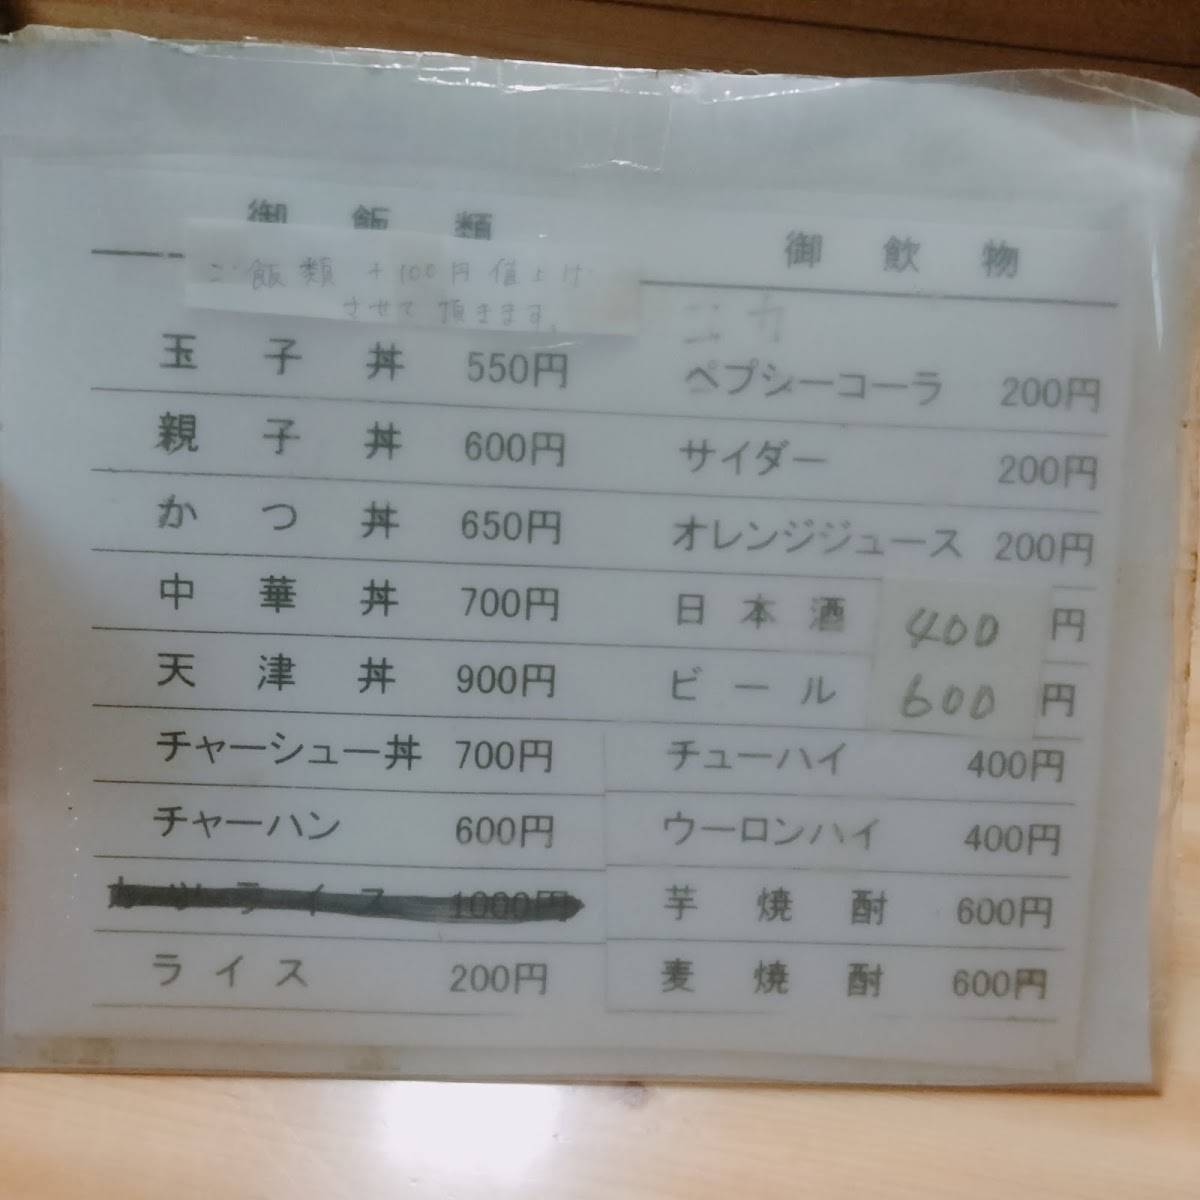 御飯類
ご飯類 +100円値上げ
させて頂きます。
玉子丼 550円
親子丼 600円
かつ丼 650円
中華丼 700円
天津丼 900円
チャーシュー丼 700円
チャーハン 600円
カツライス 1000円
ライス 200円
御飲物
ペプシーコーラ 200円
サイダー 200円
オレンジジュース 200円
日本酒 400円
ビール 600円
チューハイ 400円
ウーロンハイ 400円
芋焼酎 600円
麦焼酎 600円